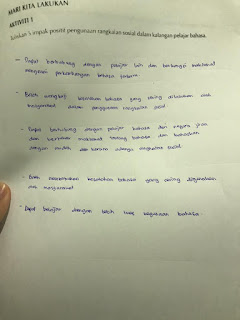 MARI KITA LAKUKAN
AKTIVITI 1
5 impak positif penggunaan rangkaian sosial dalam kalangan pelajar bahasa.
- Dapat berhubung dengan pelajar lain dan berkongsi maklumat
mengenai perkembangan bahasa
- Boleh mengkaji kesalahan bahasa yang sering dilakukan oleh
masyarakat dalam penggunaan rangkaian sosial
- Dapat berhubung dengan pelajar bahasa dari negara lain
dan bertukar maklumat tentang bahasa dan
dengan mudah dan kerana adanya rangkaian sosial.
- Boleh membetulkan kesalahan bahasa yang sering digunakan
oleh masyarakat
- Dapat belajar dengan lebih luas bahasa.